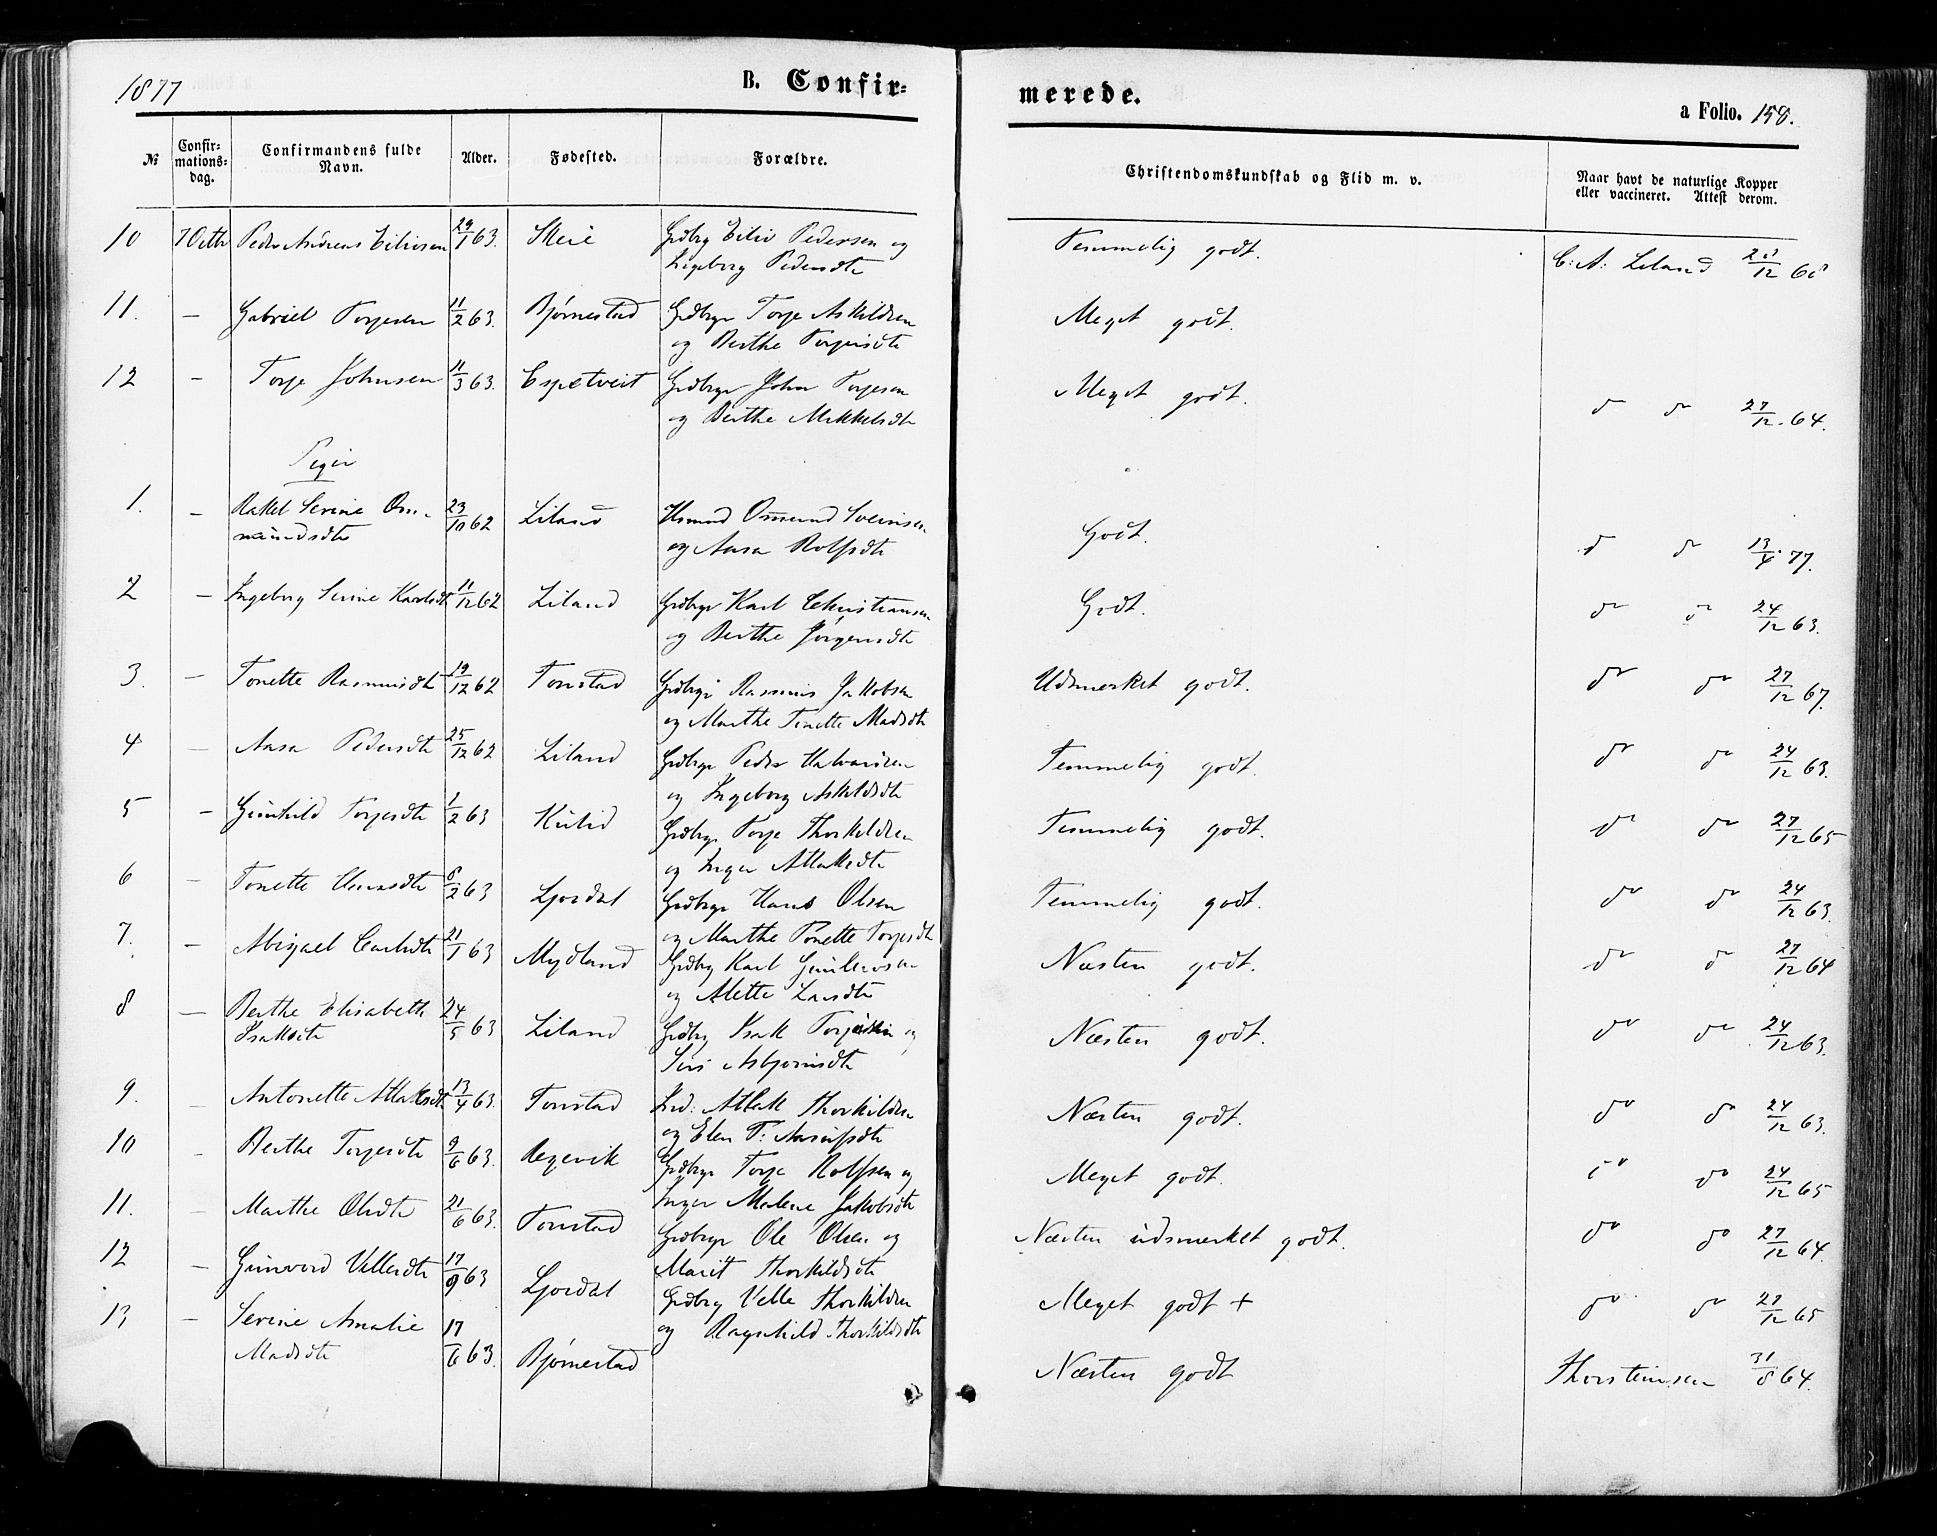 1877
B. Confir-
merede.
a Folio. 158.
№
Confir-
mations-
dag.
Confirmandens fulde
Navn.
Alder.
Fødested.
Forældre.
Christendomskundskab og Flid m. v.
Naar havt de naturlige Kopper
eller vaccineret. Attest derom.
10 7 Octbr Peder Andreas Eilivsen 29/1 63. Skeie Grdbrg Eiliv Pedersen og
Ingeborg Pedersdtr
Temmelig godt. C: A: Liland 12
11. — Gabriel Torjesen 11/2 63. Bjørnestad Grdbrgr Torje Askildsen
og Berthe Torjersdtr
Meget godt.
12 — Torje Johnsen 11/3 63. Espetveit Grdbrgr John Torjesen
og Berthe Mikkelsdtr
Meget godt. do do 27/12 64.
Piger
1. — Rakel Serine Om-
mundsdtr 23/10 62 Liland Husmd Ommund Sveinsen
og Aasa Rolfsdtr
Godt. do do 13/4 77.
2 — Ingeborg Serine Karlsdtr 11/12 62 Liland Grdbrgr Karl Christiansen
og Berthe Jørgensdtr
Godt. do do 24/12 63.
3. — Tonette Rasmusdtr 19/12 62 Tonstad Grdbrgr Rasmus Jakobsen
og Marthe Tonette Madsdtr
Udmerket godt. do do 27/12 67.
4 — Aasa Pedersdtr 25/12 62 Liland Grdbrgr Peder Halvorsen
og Ingeborg Askildsdtr
Temmelig godt. do do 24/12 63.
5 — Gunhild Torjesdtr 1/2 63 Kvlid Grdbrgr Torje Thorkildsen
og Inger Atlaksdtr
Temmelig godt. do do 27/12 65
6 — Tonette Hansdtr 8/2 63 Ljosdal Grdbrgr Hans Olsen
og Marthe Tonette Torjesdtr
Temmelig godt. do do 24/12 63.
7. — Abigael Carlsdtr 21/1 63 Mydland Grdbrg Karl Gunlevsen
og Alette Larsdtr
Næsten godt. do do 27/12 64
8 — Berthe Elisabeth
Isaksdtr 24/5 63 Liland Grdbrg Isak Torjussen og
Siri Asbjørnsdtr
Næsten godt. do do 24/12 63.
9. — Antonette Atlaksdtr 13/4 63. Tonstad Ind: Atlak Thorkildsen
og Elen T:
Næsten godt. do do 24/12 63.
10 — Berthe Torjesdtr 9/6 63. Regevik Grdbrgr Torje Rolfsen og
Inger Malene Jakobsdtr
Meget godt. do do 24/12 65
11. — Marthe Olsdtr 21/6 63. Tonstad Grdbrgr Ole Olsen og
Marit Thorkildsdtr
Næsten udmerket godt. do do 27/12 64.
12 — Gunvord Vellesdtr 17/9 63 Ljosdal Grdbrg Velle Thorkildsen
og Ragnhild Thorkildsdtr
Meget godt + do do 27/12 65
13 — Serine Amalie
Madsdtr 17/6 63. Bjørnestad
Næsten godt Thorsteinsen 31/8 64.